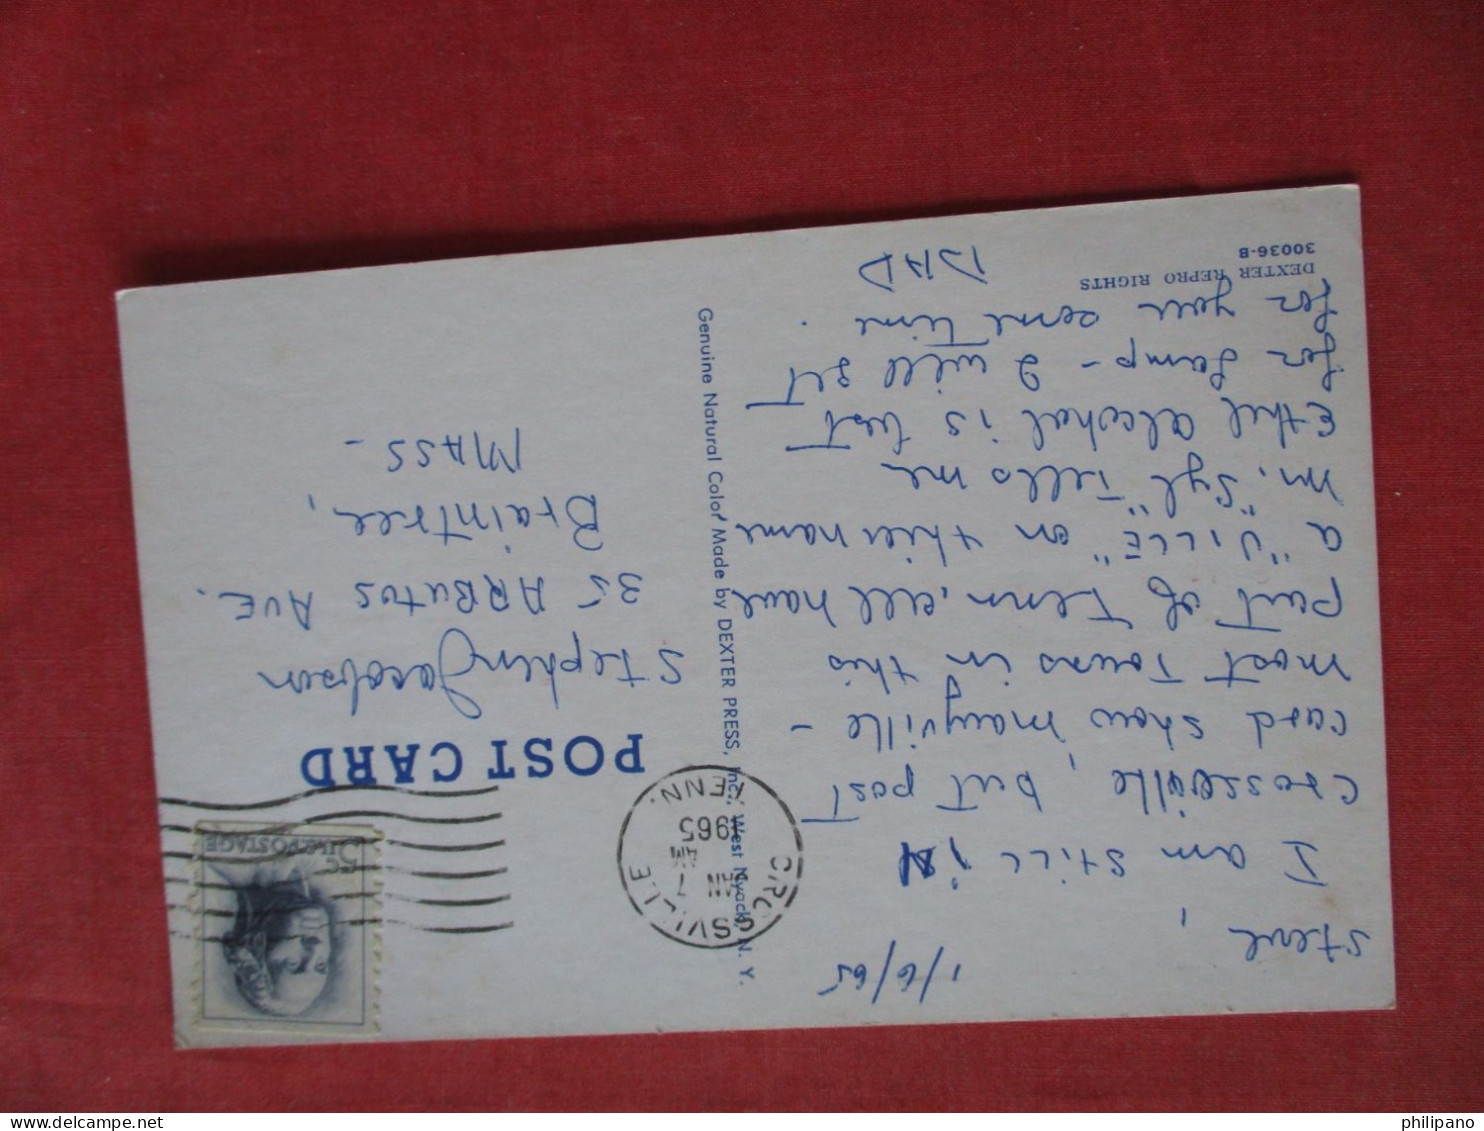 1/6/65
Steve,
I am still in
Crossville, but post
card show Maryville -
most Towns in this
part of Tenn. all have
a "VILLE" on their name
Mr. "Syl" Tells me
Ethil alcohol is best
for Lamp - I will get
for you some time.
DAD
DEXTER REPRO RIGHTS
30036-B
Genuine Natural Color Made by DEXTER PRESS, Inc., West Nyack, N. Y.
POST CARD
CROSSVILLE
JAN 7
AM
1965
TENN.
5c U.S. POSTAGE
Stephen Jacobson
35 ARButus AVE.
Braintree,
MASS -
delcampe.net
philipano